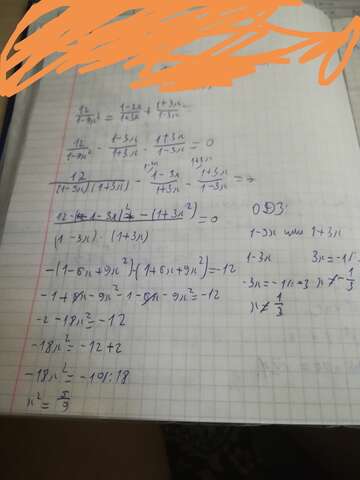 12/(1-9x²) = (1-3x)/(1+3x) + (1+3x)/(1-3x)
12/(1-9x²) - (1-3x)/(1+3x) - (1+3x)/(1-3x) = 0
12/((1-3x)(1+3x)) - (1-3x)/(1+3x) - (1+3x)/(1-3x) =>
(12-(1-3x)²-(1+3x²))/((1-3x)·(1+3x)) = 0
ОДЗ:
1-3x или 1+3x
1-3x 3x=-1
-3x=-1 x≠-1/3
x≠1/3
-(1-6x+9x²)-(1+6x+9x²)=-12
-1+6x-9x²-1-6x-9x²=-12
-2-18x²=-12
-18x²=-12+2
-18x²=-10:18
x²=5/9